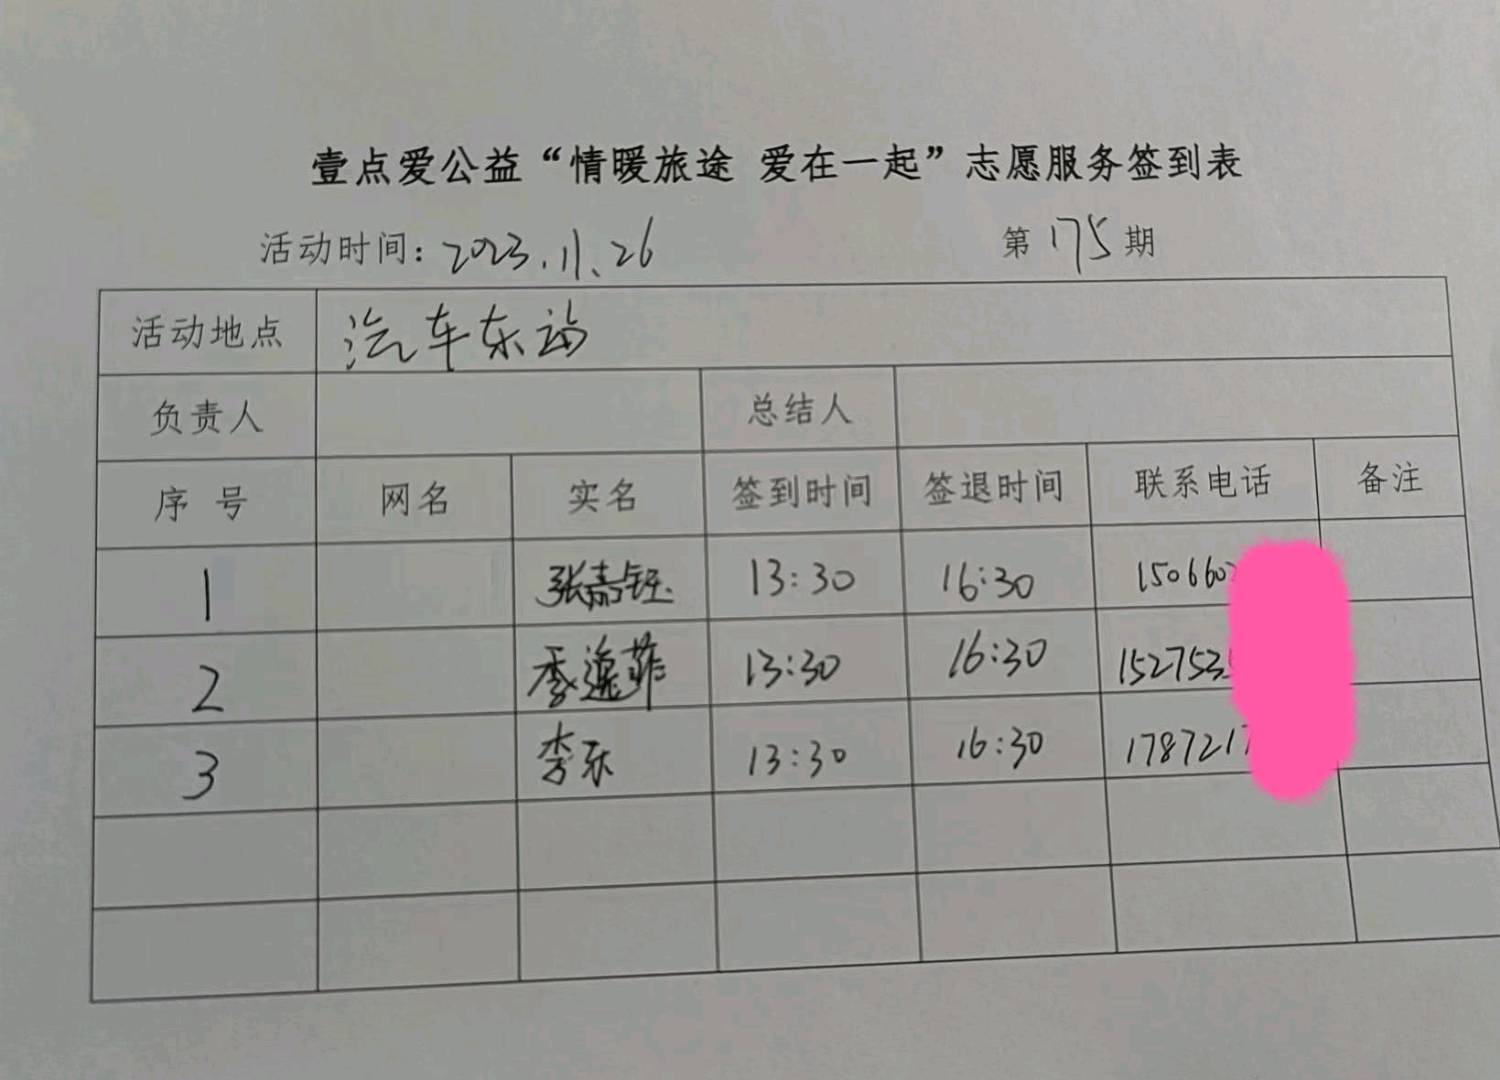 壹点爱公益“情暖旅途 爱在一起”志愿服务签到表
活动时间：2023.11.26 第175期
活动地点 汽车东站
负责人 总结人
序号 网名 实名 签到时间 签退时间 联系电话 备注
1 张嘉钰 13:30 16:30 150660
2 李逸菲 13:30 16:30 152753
3 李乐 13:30 16:30 1787217